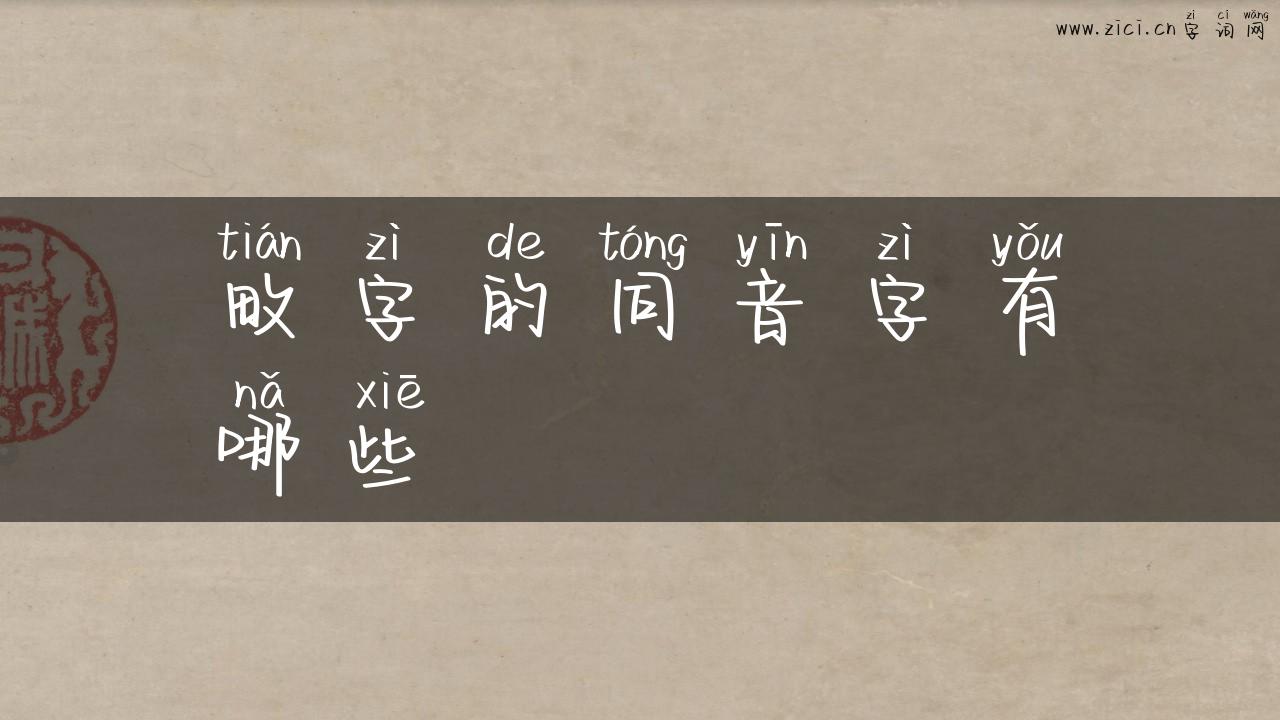 www.zici.cn 字词网
zì cí wǎng
tián zì de tóng yīn zì yǒu
畋字的同音字有
nǎ xiē
哪些